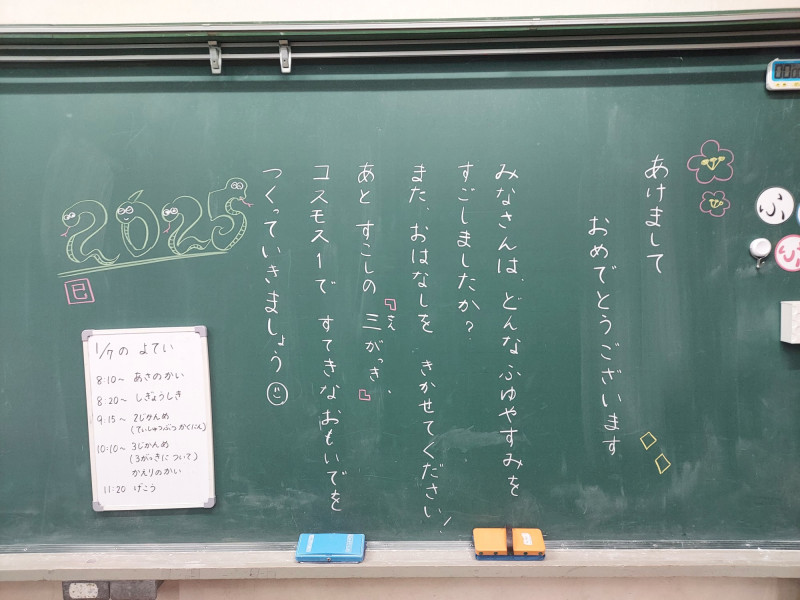 あけまして
おめでとうございます
みなさんは、どんなふゆやすみを
すごしましたか？
また、おはなしを きかせてください！
あと すこしの 三がっき、
さん
コスモス1で すてきなおもいでを
つくっていきましょう
2025
巳
1/7の よてい
8:10〜 あさのかい
8:20〜 しぎょうしき
9:15〜 2じかんめ
(ていしゅつぶつかくにん)
10:10〜 3じかんめ
(3がっきについて)
かえりのかい
11:20 げこう